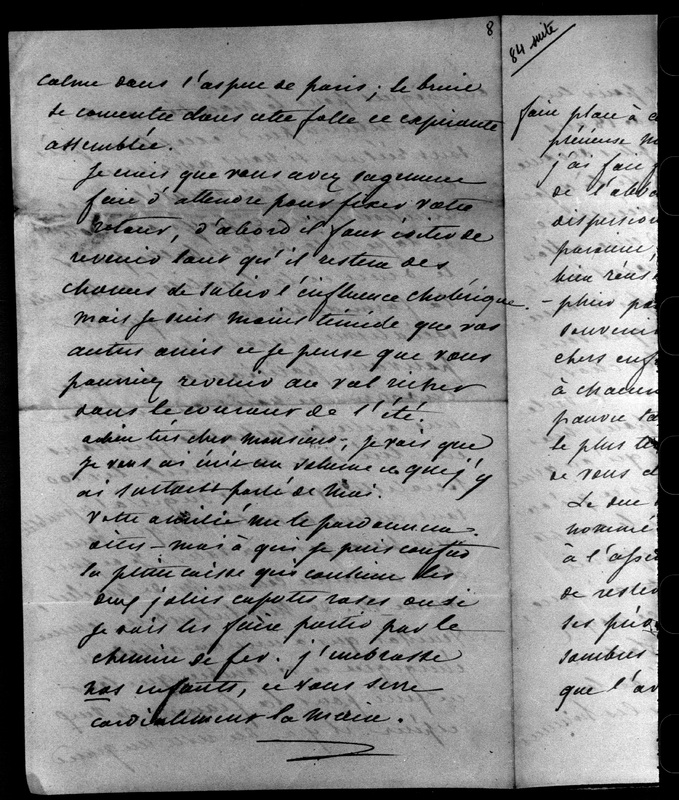 8
calme dans l'aspect de paris; le bruit
se concentre dans cette folle et expirante
assemblée.
Je crois que vous avez sagement
fait d'attendre pour fixer votre
retour, d'abord il faut éviter de
revenir tant qu'il restera des
chances de subir l'influence cholérique.
mais je suis moins timide que vos
autres amis et je pense que vous
pourriez revenir au val richer
dans le courant de l'été.
adieu très cher monsieur, je vois que
je vous ai écrit un volume et que j'y
ai surtout parlé de moi.
Votre amitié me le pardonnera.
dites-moi à qui je puis confier
la petite caisse qui contient les
deux jolies capotes roses ou si
je vais les faire partir par le
chemin de fer. j'embrasse
nos enfants, et vous serre
cordialement la main.
84 suite
faire place à
précieuse
j'ai fait
de l'
dispersion
bien
plus
souvenir
chers enf
à chacun
pauvre
le plus
de vous
Le duc
nommé
à l'
de rester
ses
sombres
que l'